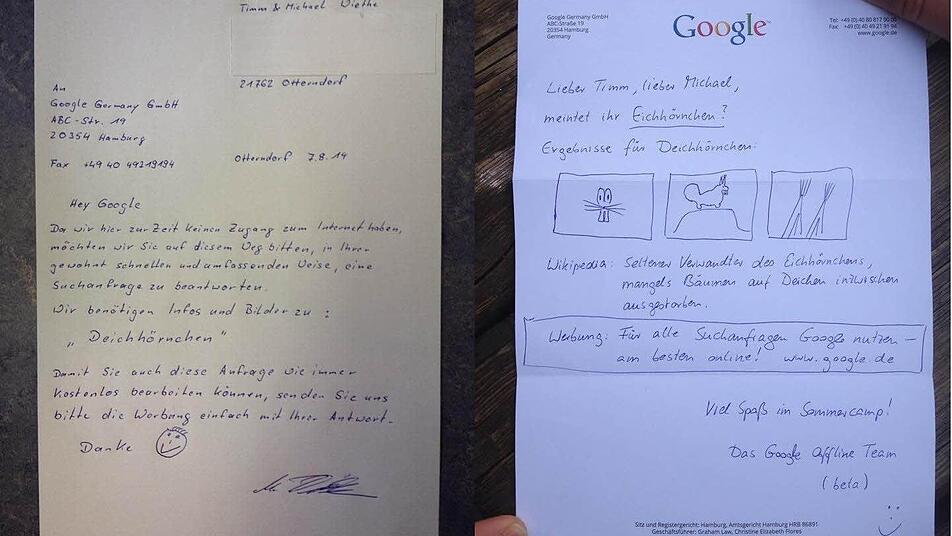 Timm & Michael Wiethe
21762 Otterndorf
An
Google Germany GmbH
ABC-Str. 19
20354 Hamburg
Fax +49 40 49219194
Otterndorf 7.8.14
Hey Google
Da wir hier zur Zeit keinen Zugang zum Internet haben,
möchten wir Sie auf diesem Weg bitten, in Ihrer
gewohnt schnellen und umfassenden Weise, eine
Suchanfrage zu beantworten.
Wir benötigen Infos und Bilder zu :
„ Deichhörnchen "
Damit Sie auch diese Anfrage wie immer
kostenlos bearbeiten können, senden Sie uns
bitte die Werbung einfach mit Ihrer Antwort.
Danke
Google Germany GmbH
ABC-Straße 19
20354 Hamburg
Germany
Google
Tel: +49 (0) 40 80 817 00 00
Fax: +49 (0) 40 49 21 91 94
www.google.de
Lieber Timm, lieber Michael,
meintet ihr Eichhörnchen?
Ergebnisse für Deichhörnchen:
Wikipedia: Seltener Verwandter des Eichhörnchens,
mangels Bäumen auf Deichen inzwischen
ausgestorben.
Werbung: Für alle Suchanfragen Google nutzen –
am besten online! www.google.de
Viel Spaß im Sommercamp!
Das Google Offline Team
(beta)
Sitz und Registergericht: Hamburg, Amtsgericht Hamburg HRB 86891
Geschäftsführer: Graham Law, Christine Elizabeth Flores